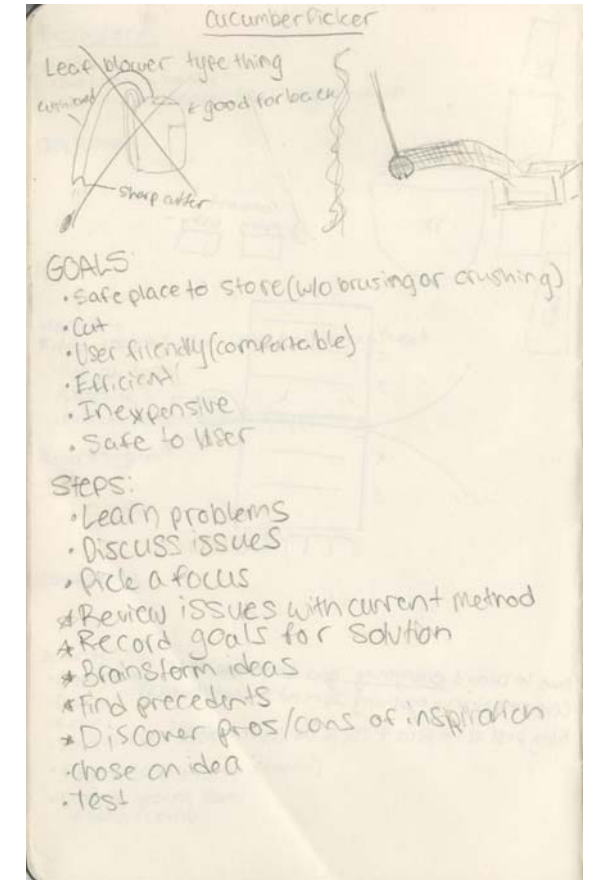 cucumber Picker
Leaf blower type thing
cushioned
* good for back
sharp cutter
GOALS:
• Safe place to store (w/o brusing or crushing)
• Cut
• User friendly (comfortable)
• Efficient
• Inexpensive
• Safe to User
Steps:
• Learn problems
• Discuss issues
• Pick a focus
* Review issues with current method
* Record goals for solution
* Brainstorm ideas
* Find precedents
* Discover pros/cons of inspiration
• chose an idea
• Test